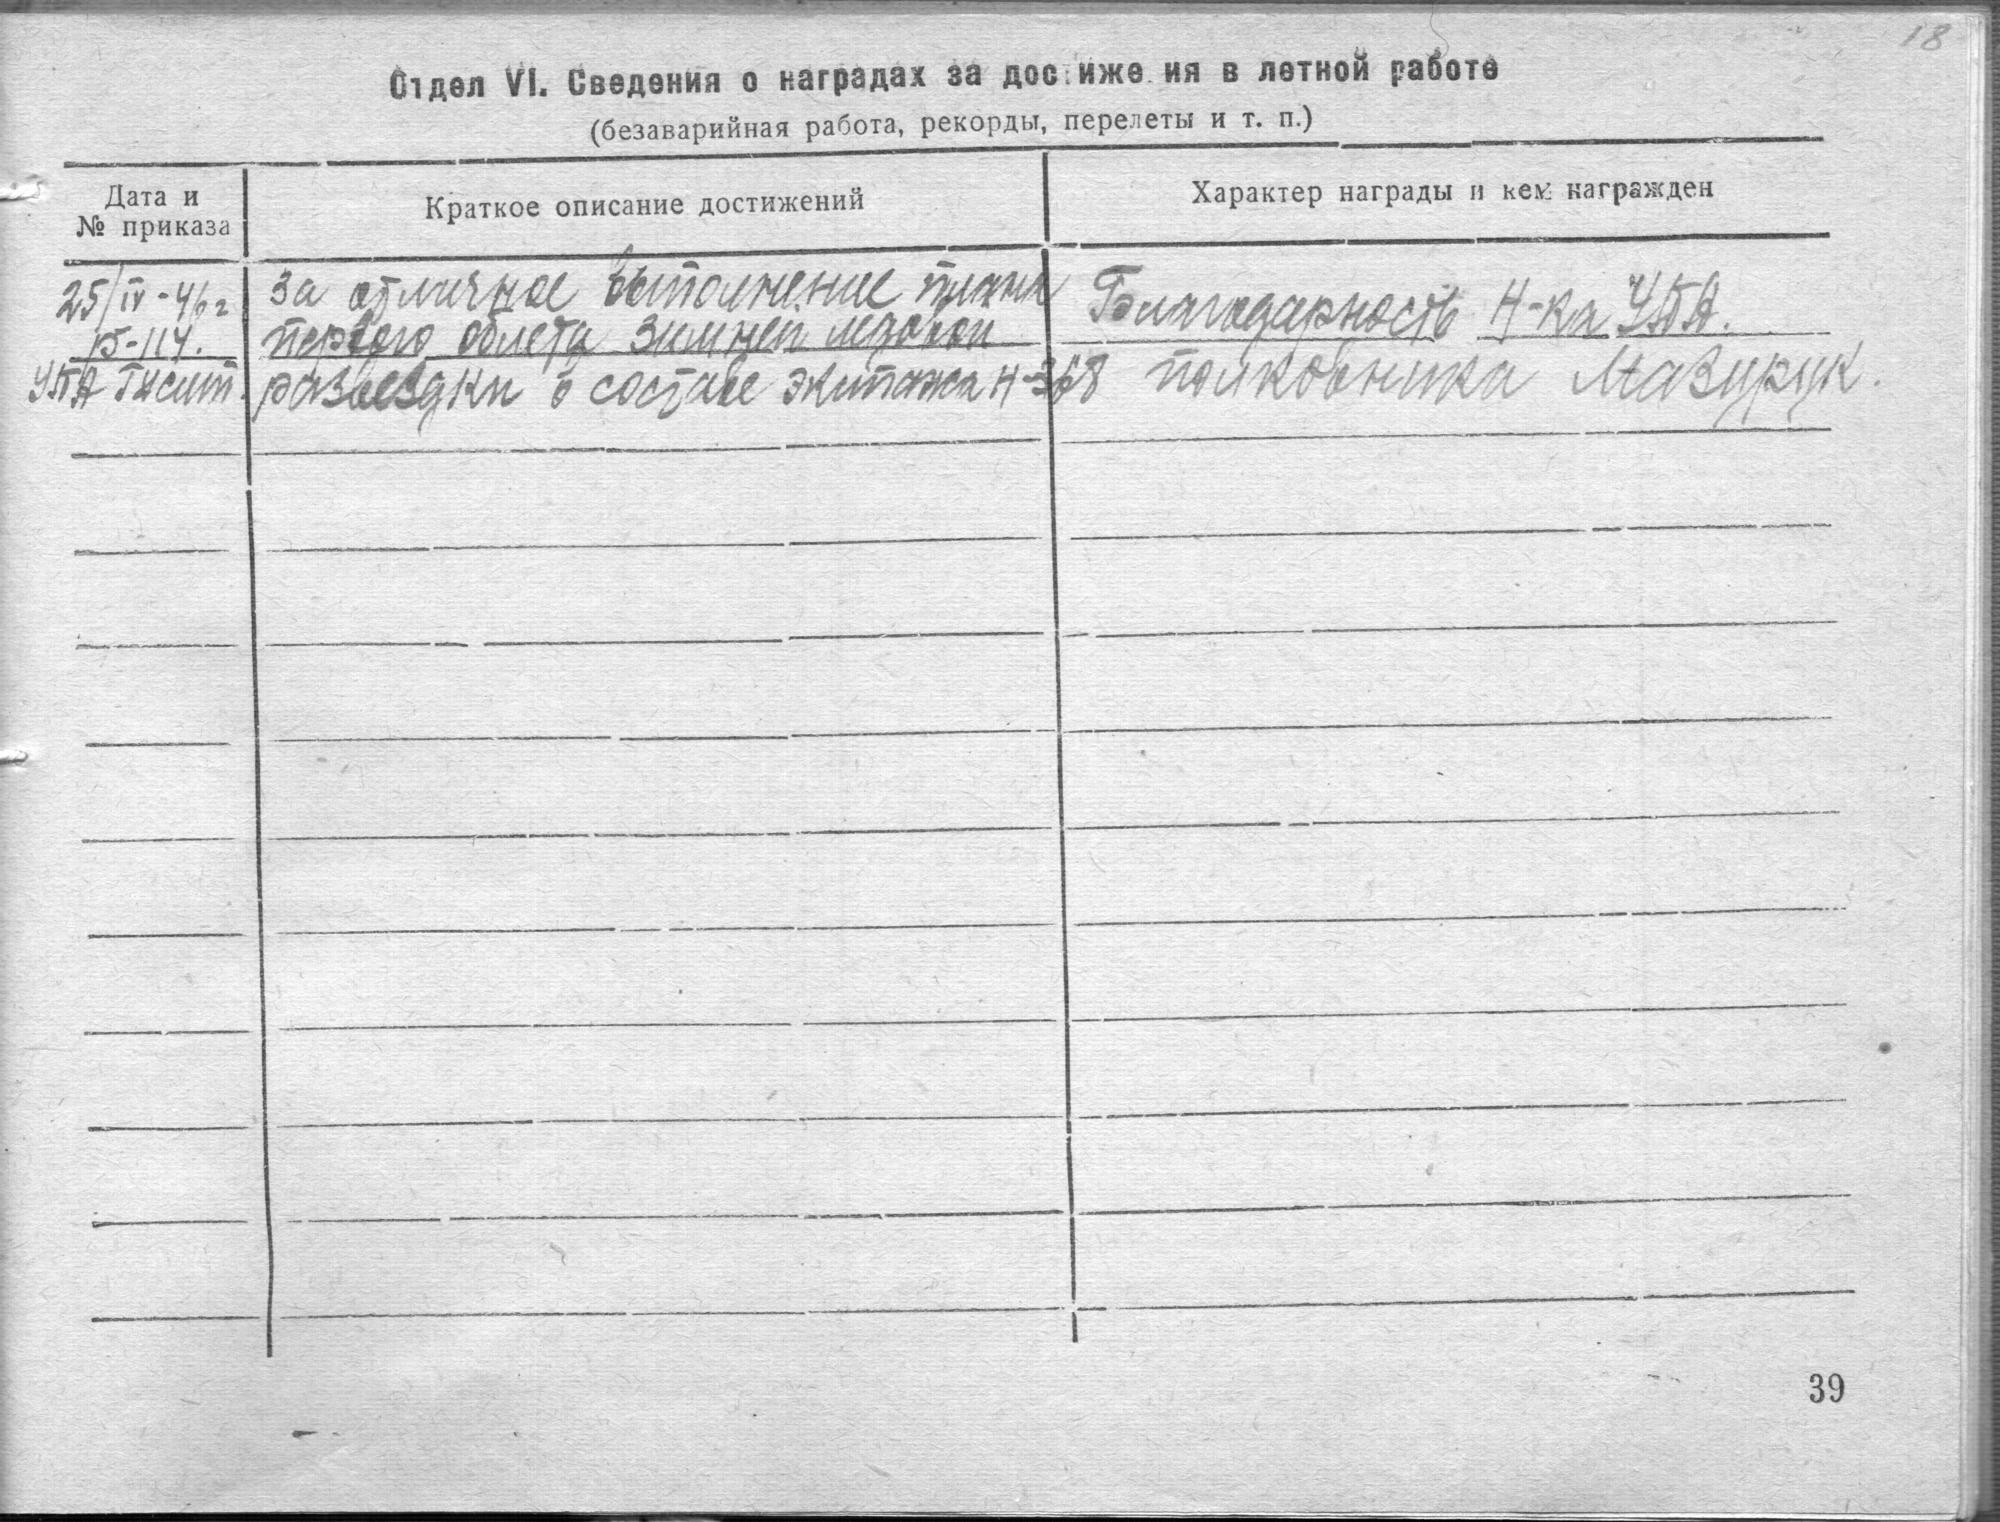 18
Отдел VI. Сведения о наградах за достижения в летной работе
(безаварийная работа, рекорды, перелеты и т. п.)
Дата и № приказа
Краткое описание достижений
Характер награды и кем награжден
25/IV-46 г
за отличное выполнение плана
Благодарность Н-ка УПА.
первого облета зимней ледовой
УПА
разведки в составе экипажа Н-368
полковника Мазурук.
39